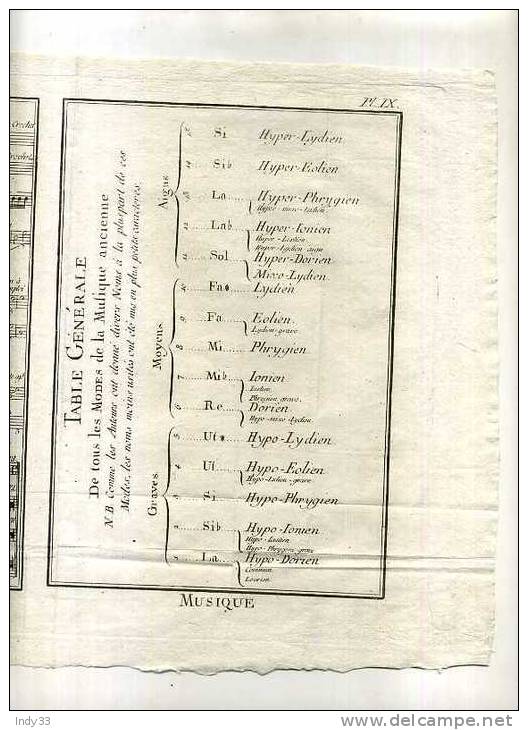 Pl. IX.
TABLE GÉNÉRALE
De tous les MODES de la Musique ancienne
N.B. Comme les Auteurs ont donné divers Noms à la pluspart de ces
Modes, les noms moins usités ont été mis en plus petits caracteres.
Aigus
15 Si Hyper-Lydien
14 Sib Hyper-Eolien
13 La Hyper-Phrygien
Hyper-mixo-Lydien
12 Lab Hyper-Ionien
Hyper-Iastien
Hyper-Lydien aigu
11 Sol Hyper-Dorien
Mixo-Lydien
Moyens
10 Fa* Lydien
9 Fa Eolien
Lydien-grave
8 Mi Phrygien
7 Mib Ionien
Iastien
Phrygien grave
6 Re Dorien
Hypo-mixo-Lydien
Graves
5 Ut* Hypo-Lydien
4 Ut Hypo-Eolien
Hypo-Lidien-grave
3 Si Hypo-Phrygien
2 Sib Hypo-Ionien
Hypo-Iastien
Hypo-Phrygien grave
La Hypo-Dorien
Commun
Locrien
MUSIQUE
Indy33
www.delcampe.net